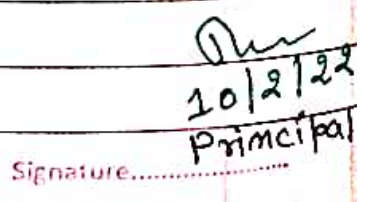 10/2/22
Principal
Signature....................